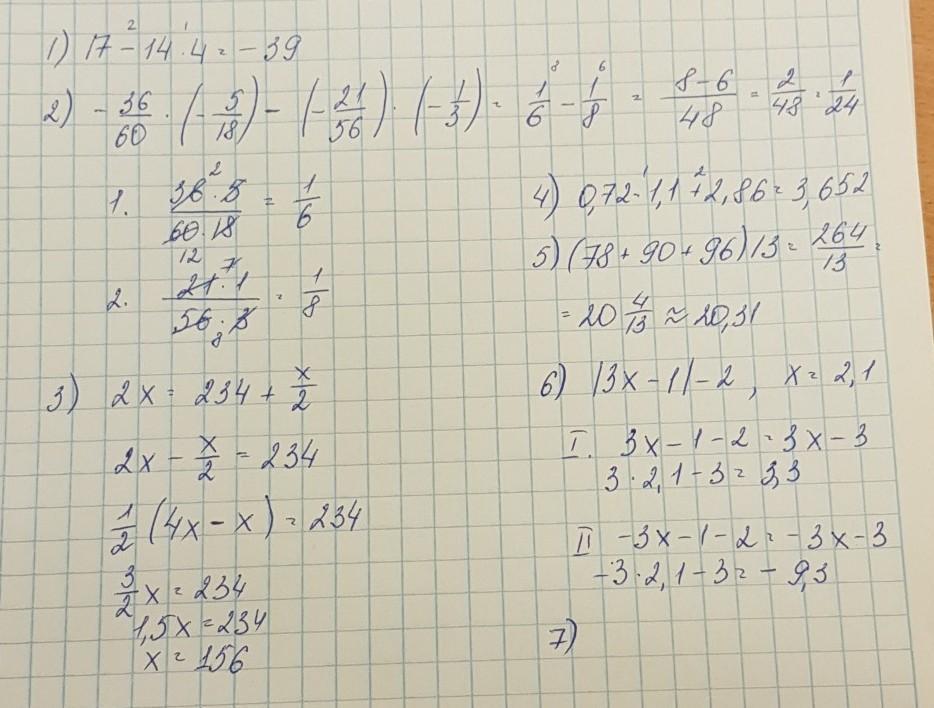 1) 17 - 14 · 4 = -39
2) - 36/60 · (- 5/18) - (- 21/56) · (- 1/3) = 1/6 - 1/8 = (8-6)/48 = 2/48 = 1/24
1. (36 · 5)/(60 · 18) = 1/6
2. (21 · 1)/(56 · 3) = 1/8
3) 2x = 234 + x/2
2x - x/2 = 234
1/2 (4x - x) = 234
3/2 x = 234
1,5x = 234
x = 156
4) 0,72 · 1,1 + 2,86 = 3,652
5) (78 + 90 + 96) 13 = 264/13 =
= 20 4/13 ≈ 20,31
6) |3x - 1| - 2 , x = 2,1
I. 3x - 1 - 2 = 3x - 3
3 · 2,1 - 3 = 3,3
II -3x - 1 - 2 = -3x - 3
-3 · 2,1 - 3 = - 9,3
7)